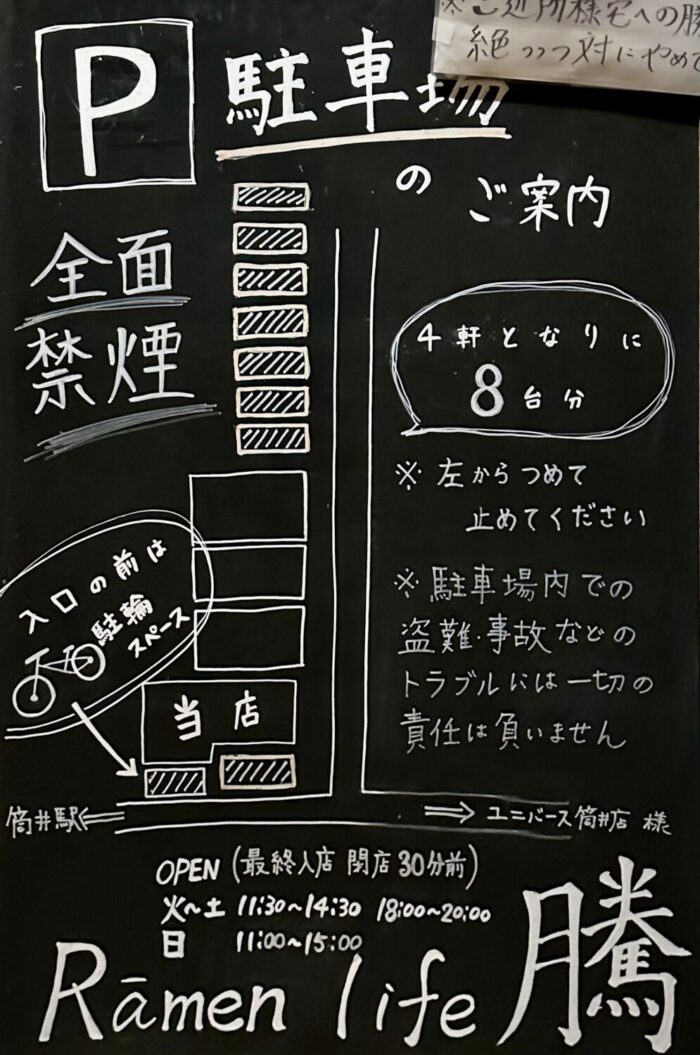 ※ご近所様宅への
絶っっっ対にやめて
P
駐車場
の ご案内
全面
禁煙
4軒となりに
8台分
※左からつめて
止めてください
※駐車場内での
盗難・事故などの
トラブルには一切の
責任は負いません
入口の前は
駐輪
スペース
当店
筒井駅
ユニバース筒井店 様
OPEN (最終入店 閉店30分前)
火〜土 11:30〜14:30 18:00〜20:00
日 11:00〜15:00
Rāmen life 騰